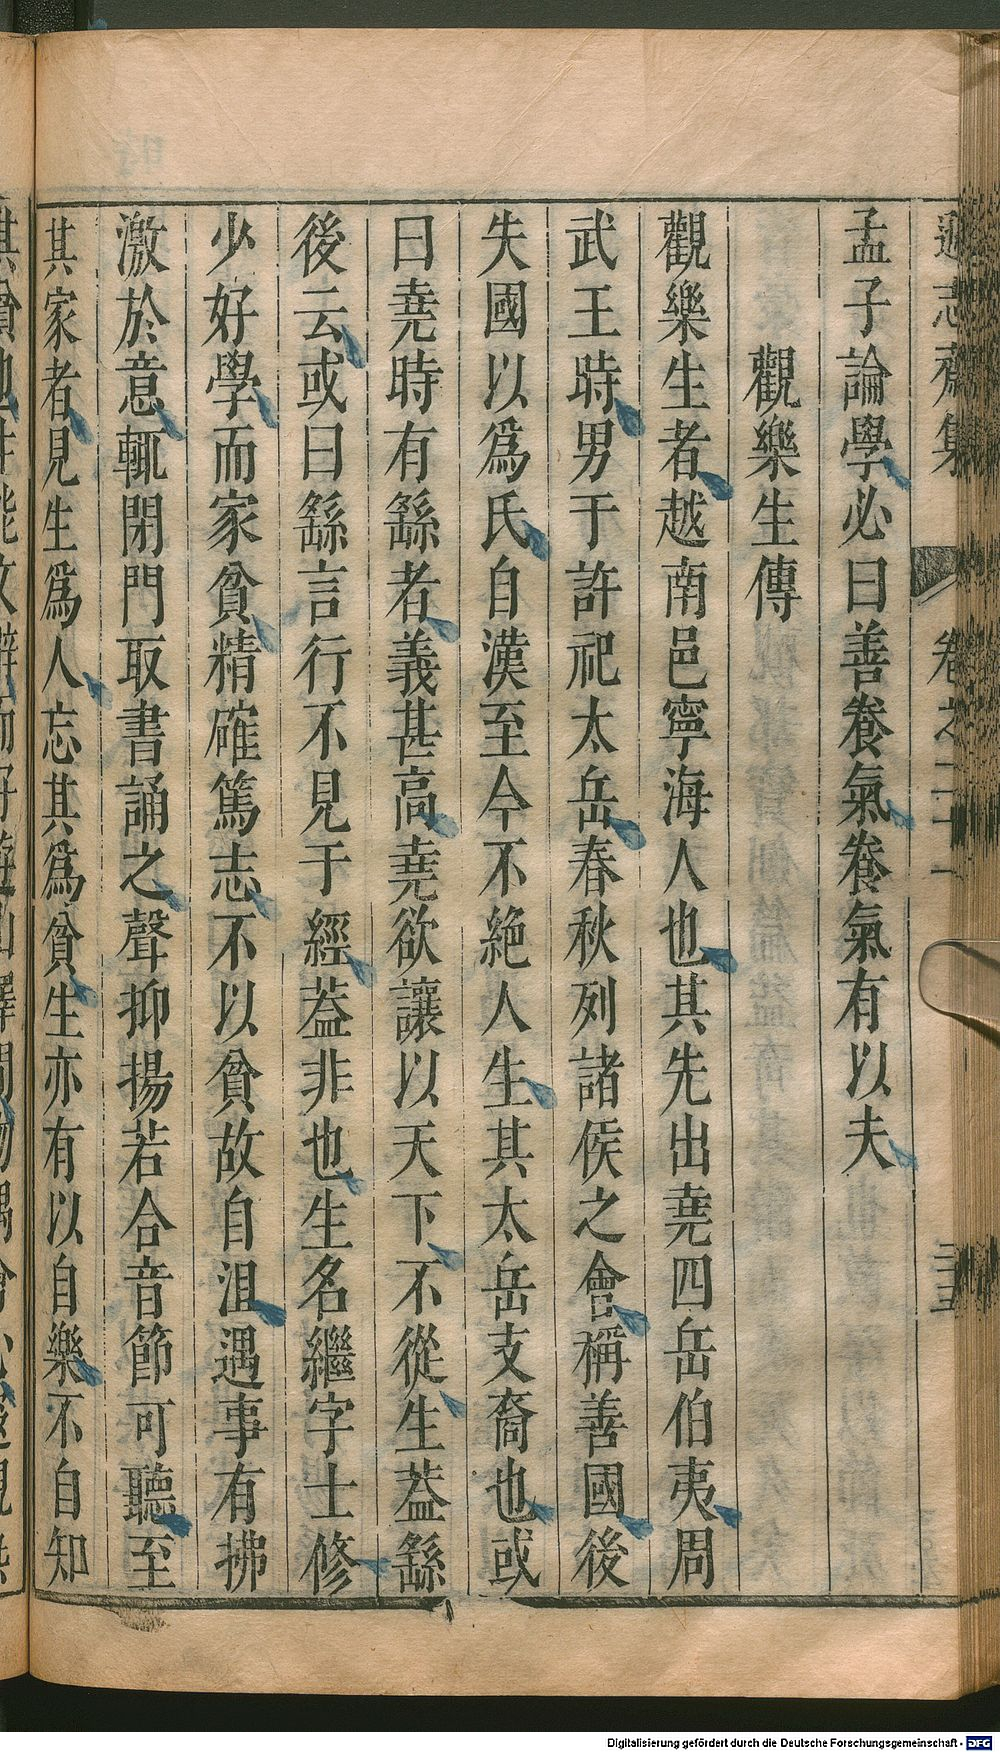 遜志齋集 卷之二十一 三五
孟子論學必曰善養氣養氣有以夫
觀樂生傳
觀樂生者越南邑寧海人也其先出堯四岳伯夷周
武王時男于許祀太岳春秋列諸侯之會稱善國後
失國以爲氏自漢至今不絕人生其太岳支裔也或
曰堯時有繇者義甚高堯欲讓以天下不從生葢繇
後云或曰繇言行不見于經葢非也生名繼字士修
少好學而家貧精確篤志不以貧故自沮遇事有拂
激於意輒閉門取書誦之聲抑揚若合音節可聽至
其家者見生爲人忘其爲貧生亦有以自樂不自知
Digitalisierung gefördert durch die Deutsche Forschungsgemeinschaft - DFG